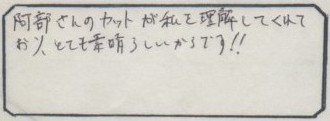 阿部さんのカットが私を理解してくれて
おり、とても素晴らしいからです!!